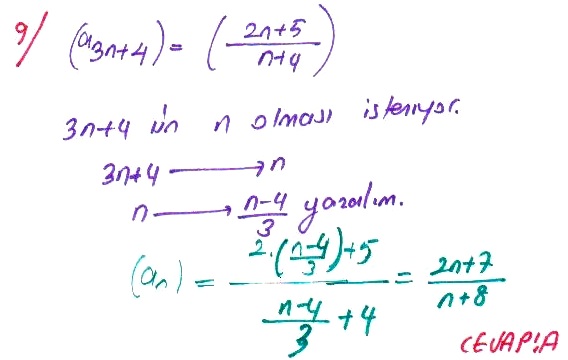 9/ (a3n+4) = (2n+5/n+4)
3n+4 ün n olması isteniyor.
3n+4 → n
n → n-4/3 yazalım.
(an) = 2.(n-4/3)+5 / n-4/3 + 4 = 2n+7/n+8
CEVAP:A